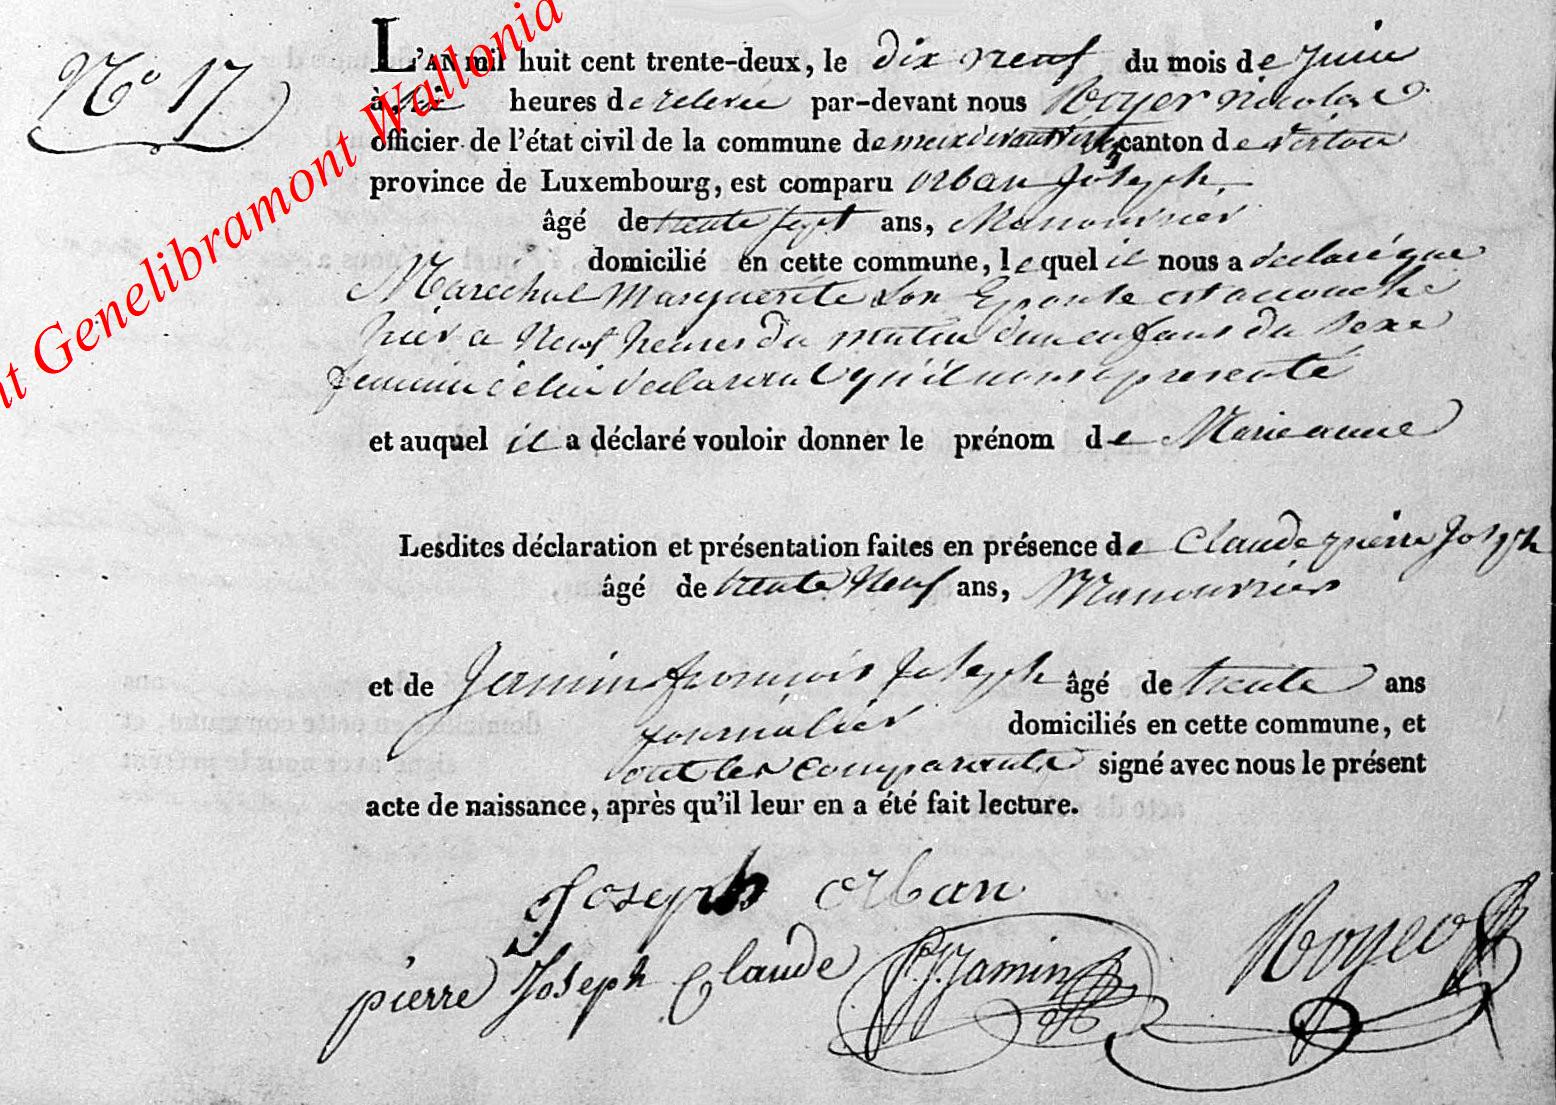 N° 17
L'AN mil huit cent trente-deux, le dix neuf du mois de juin
à six heures de relevée par-devant nous Royer nicolas
officier de l'état civil de la commune de meix devant virton canton de virton
province de Luxembourg, est comparu orban joseph,
âgé de trente sept ans, Manouvrier
domicilié en cette commune, lequel il nous a déclaré que
Marechal Marguerite son Epouse est accouché
hier a neuf heures du matin d'un enfant du sexe
feminin célui déclarant qu'il nous a presenté
et auquel il a déclaré vouloir donner le prénom de Marie anne
Lesdites déclaration et présentation faites en présence de Claude pierre joseph
âgé de trente neuf ans, Manouvrier
et de Jamin françois joseph âgé de trente ans
journalier domiciliés en cette commune, et
ont les comparants signé avec nous le présent
acte de naissance, après qu'il leur en a été fait lecture.
Joseph orban
pierre Joseph Claude f.J. Jamin Royer
nt Genelibramont Wallonia